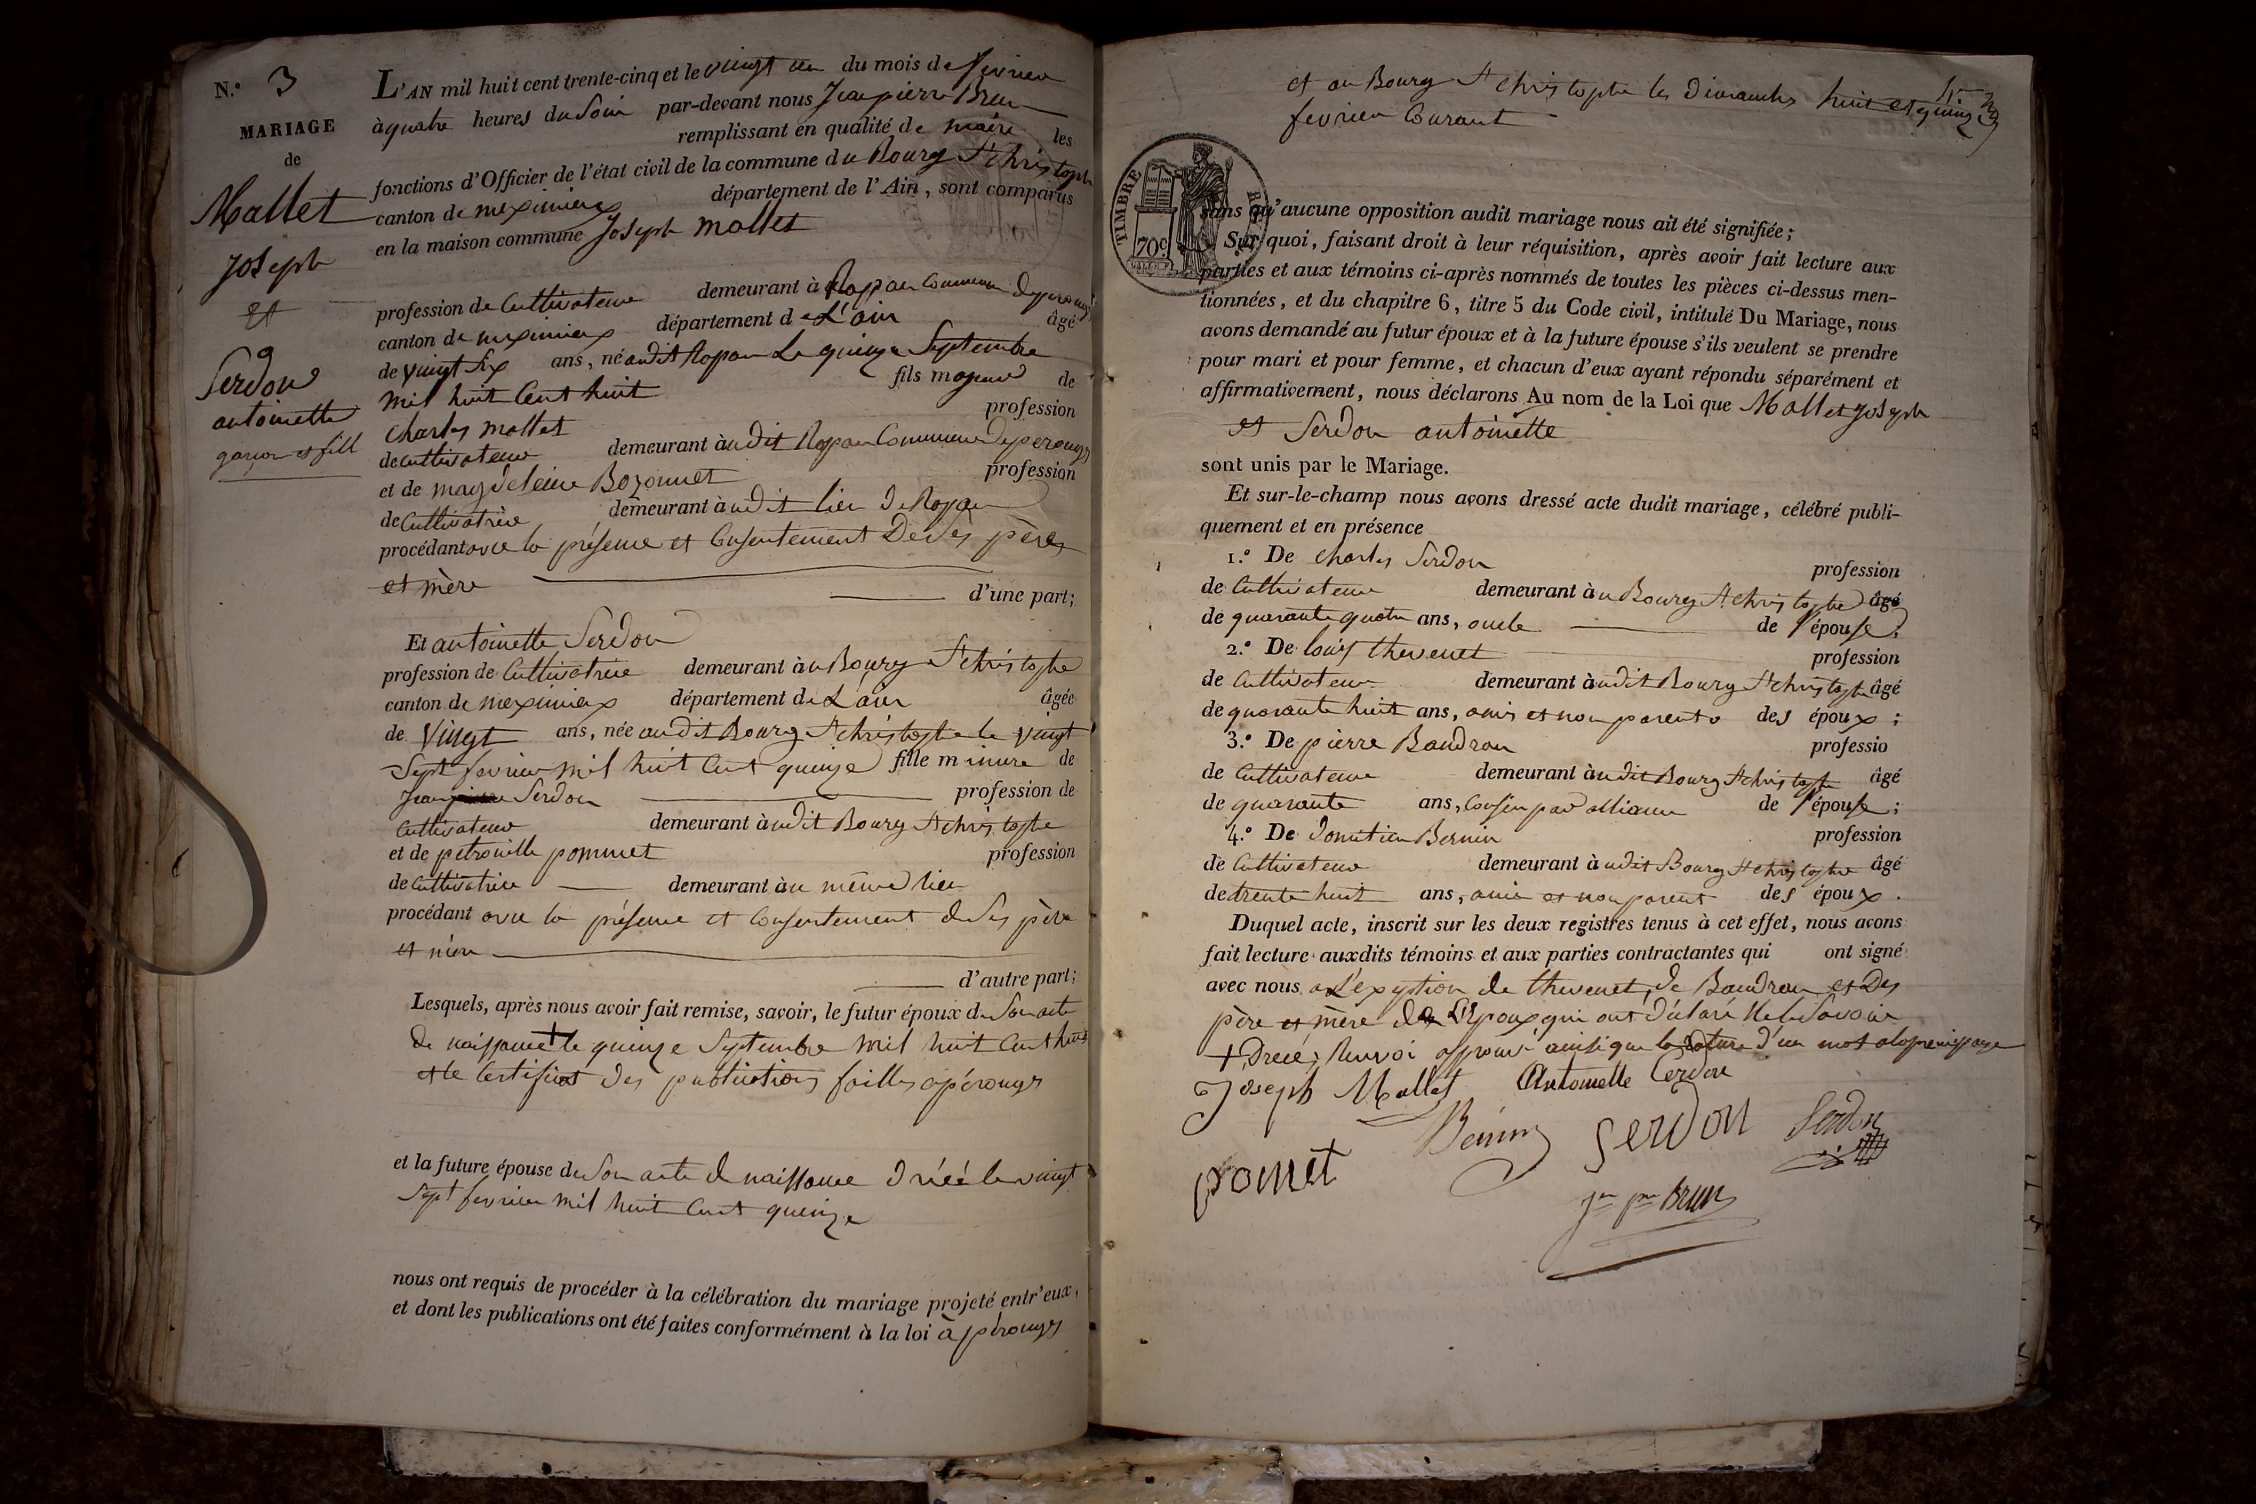 N.º 3
MARIAGE
de
Mallet
Joseph
et
Serdon
antoinette
garçon et fille
L'AN mil huit cent trente-cinq et le vingt un du mois de fevrier
à quatre heures du Soir par-devant nous Jean pierre Brun
remplissant en qualité de maire les
fonctions d'Officier de l'état civil de la commune du Bourg St christophe
canton de meximieux département de l'Ain, sont comparus
en la maison commune Joseph mallet
profession de Cultivateur demeurant à Rapan Commune de perouges
canton de meximieux département de L'ain âgé
de vingt six ans, né audit Rapan Le quinze Septembre
mil huit Cent huit fils majeur de
Charles mallet profession
de cultivateur demeurant audit Rapan Commune de perouges
et de magdeleine Bozonnet profession
de Cultivatrice demeurant audit lieu de Rapan
procédant avec la présence et Consentement De Ses père
et mère d'une part;
Et antoinette Serdon
profession de Cultivatrice demeurant au Bourg St christophe
canton de meximieux département de L'ain âgée
de Vingt ans, née audit Bourg St christophe le vingt
Sept fevrier mil huit Cent quinze fille mineure de
Jean Serdon profession de
Cultivateur demeurant audit Bourg St christophe
et de petronille pommet profession
de Cultivatrice demeurant au même lieu
procédant avec la présence et Consentement de Ses père
et mère
d'autre part;
Lesquels, après nous avoir fait remise, savoir, le futur époux de Son acte
de naissance + le quinze Septembre mil huit Cent huit
et le Certificat des publications faittes a pérouges
et la future épouse de Son acte de naissance Dréé le vingt
Sept fevrier mil huit Cent quinze
nous ont requis de procéder à la célébration du mariage projeté entr'eux,
et dont les publications ont été faites conformément à la loi à pérouges
et au Bourg St christophe les Dimanches huit et quinze
fevrier Courant
TIMBRE
70c
sans qu'aucune opposition audit mariage nous ait été signifiée;
Sur quoi, faisant droit à leur réquisition, après avoir fait lecture aux
parties et aux témoins ci-après nommés de toutes les pièces ci-dessus men-
tionnées, et du chapitre 6, titre 5 du Code civil, intitulé Du Mariage, nous
avons demandé au futur époux et à la future épouse s'ils veulent se prendre
pour mari et pour femme, et chacun d'eux ayant répondu séparément et
affirmativement, nous déclarons Au nom de la Loi que Mallet Joseph
et Serdon antoinette
sont unis par le Mariage.
Et sur-le-champ nous avons dressé acte dudit mariage, célébré publi-
quement et en présence
1.º De Charles Serdon profession
de Cultivateur demeurant au Bourg St christophe âgé
de quarante quatre ans, oncle de l'épouse;
2.º De louis thevenet profession
de Cultivateur demeurant audit Bourg St christophe âgé
de quarante huit ans, amis et non parents des époux;
3.º De pierre Baudran professio
de Cultivateur demeurant audit Bourg St christophe âgé
de quarante ans, Cousin par alliance de l'épouse;
4.º De Donatien Bernin profession
de Cultivateur demeurant audit Bourg St christophe âgé
de trente huit ans, amis et non parent des époux.
Duquel acte, inscrit sur les deux registres tenus à cet effet, nous avons
fait lecture auxdits témoins et aux parties contractantes qui ont signé
avec nous a L'exeption de thevenet, de Baudran et Des
père et mère de L'Epoux qui ont déclaré Ne le Savoir
+ Dréé, Renvoi approuvé ainsi que la rature d'un mot a la premiere page
Joseph Mallet Antoinette Cerdon
Bernin Serdon Serdon
pomet
jn pre Brun